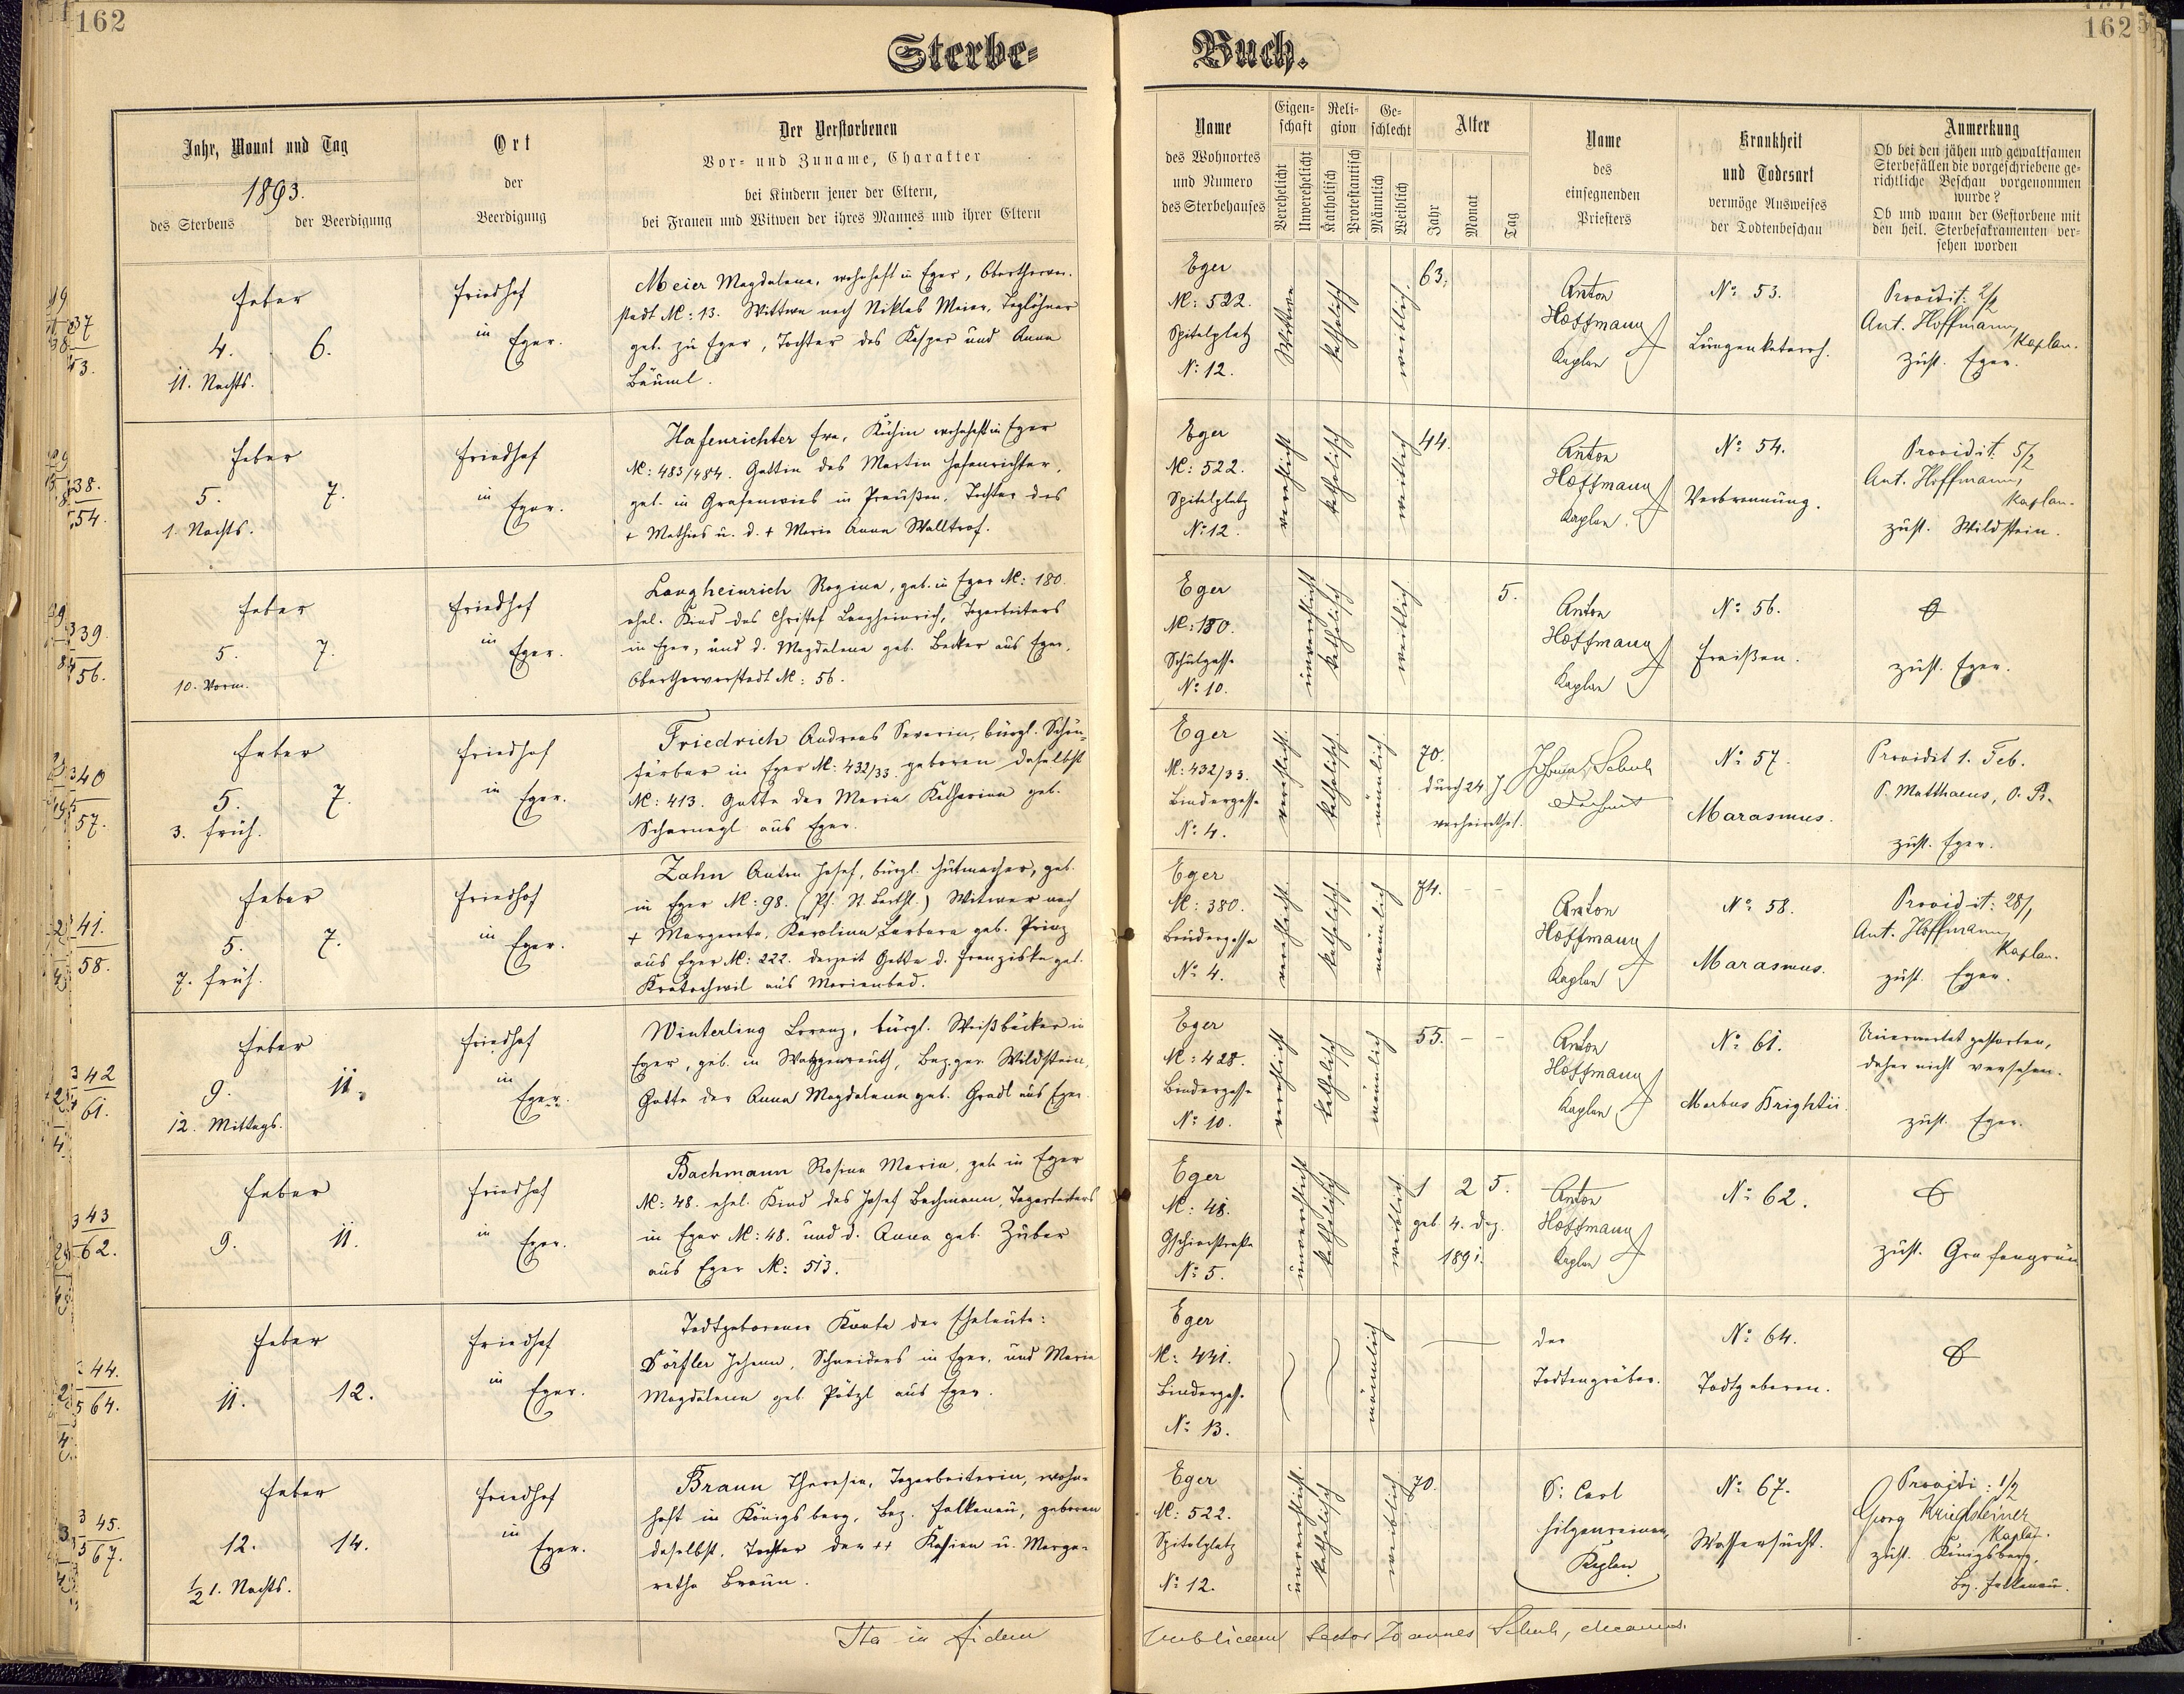 162
Sterbe-
Jahr, Monat und Tag
1893.
des Sterbens
der Beerdigung
Ort
der
Beerdigung
Der Verstorbenen
Vor- und Zuname, Charakter
bei Kindern jener der Eltern,
bei Frauen und Witwen der ihres Mannes und ihrer Eltern
37
53.
Feber
4.
6.
11. Nachts.
Friedhof
in
Eger.
Meier Magdalena, wohnhaft in Eger, Oberthorvor-
stadt №: 13. Wittwe nach Niklas Meier, Taglöhner
geb. zu Eger, Tochter des Kaspar und Anna
Bäuml.
38.
54.
Feber
5.
7.
1. Nachts.
Friedhof
in
Eger.
Hafenrichter Eva, Köchin wohnhaft in Eger
№: 483/484. Gattin des Martin Hafenrichter,
geb. in Grafenwies in Preußen. Tochter des
+ Mathias u. d. + Maria Anna Walltrof.
339.
56.
Feber
5.
7.
10. Vorm.
Friedhof
in
Eger.
Langheinrich Regina, geb. in Eger №: 180.
ehel. Kind des Christof Langheinrich, Tagarbeiters
in Eger, und d. Magdalena geb. Becker aus Eger,
Oberthorvorstadt №: 56.
340
57.
Feber
5.
7.
3. früh.
Friedhof
in
Eger.
Friedrich Andreas Severin, bürgl. Schön-
färber in Eger №: 432/33. geboren daselbst
№: 413. Gatte der Maria Katharina geb.
Scharnagl aus Eger.
41.
58.
Feber
5.
7.
7. früh.
Friedhof
in
Eger.
Zahn Anton Josef, bürgl. Hutmacher, geb.
in Eger №: 98. Witwer nach
+ Margareta, Karolina Barbara geb. Prinz
aus Eger №: 222. derzeit Gatte d. Franziska geb.
Kratochwil aus Marienbad.
342
61.
Feber
9.
11.
12. Mittags.
Friedhof
in
Eger.
Winterling Lorenz, bürgl. Weißbäcker in
Eger, geb. in Watzgenreuth, Bez.ger. Wildstein,
Gatte der Anna Magdalena geb. Gradl aus Eger.
343
62.
Feber
9.
11.
Friedhof
in
Eger.
Bachmann Rosina Maria, geb. in Eger
№: 48. ehel. Kind des Josef Bachmann, Tagarbeiters
in Eger №: 48. und d. Anna geb. Zuber
aus Eger №: 513.
344.
64.
Feber
11.
12.
Friedhof
in
Eger.
Todtgeborener Knabe der Eheleute:
Dörfler Johann, Schneiders in Eger, und Maria
Magdalena geb. Pötzl aus Eger.
345.
67.
Feber
12.
14.
½ 1. Nachts.
Friedhof
in
Eger.
Braun Theresia, Tagarbeiterin, wohn-
haft in Königsberg, Bez. Falkenau, geboren
daselbst, Tochter der ++ Kasian u. Marga-
retha Braun.
Ita in fidem
162
Buch.
Name
des Wohnortes
und Numero
des Sterbehauses
Eigen-
schaft
Verehelicht
Unverehelicht
Reli-
gion
Katholisch
Protestantisch
Ge-
schlecht
Männlich
Weiblich
Alter
Jahr
Monat
Tag
Name
des
einsegnenden
Priesters
Krankheit
und Todesart
vermöge Ausweises
der Todtenbeschau
Anmerkung
Ob bei den jähen und gewaltsamen
Sterbefällen die vorgeschriebene ge-
richtliche Beschau vorgenommen
wurde?
Ob und wann der Gestorbene mit
den heil. Sterbesakramenten ver-
sehen worden
Eger
№: 522.
Spitalplatz
№ 12.
Wittwe
katholisch
weiblich.
63.
Anton
Hoffmann
Kaplan
№ 53.
Lungenkatarrh.
Providit: 2/2
Ant. Hoffmann
Kaplan.
zust. Eger.
Eger
№: 522.
Spitalplatz
№ 12.
verehlicht
katholisch
weiblich
44.
Anton
Hoffmann
Kaplan.
№ 54.
Verbrennung.
Providit. 5/2
Ant. Hoffmann,
Kaplan.
zust. Wildstein.
Eger
№: 180.
Schulgasse
№ 10.
unverehlicht
katholisch
weiblich
5.
Anton
Hoffmann
Kaplan
№ 56.
Fraißen.
zust. Eger.
Eger
№: 432/33.
Bindergasse
№ 4.
verehlicht
katholisch
männlich
70.
durch 24. J
verheirathet.
Johann Schuh
Dechant
№ 57.
Marasmus.
Providit 1. Feb.
P. Matthaeus, O. Pr.
zust. Eger.
Eger
№: 380.
Brudergasse
№ 4.
verehlicht
katholisch
männlich
74. - -
Anton
Hoffmann
Kaplan
№ 58.
Marasmus.
Providit: 28/1
Ant. Hoffmann
Kaplan.
zust. Eger.
Eger
№: 428.
Bindergasse
№ 10.
verehlicht
katholisch
männlich
55. - -
Anton
Hoffmann
Kaplan
№ 61.
Morbus Brightii.
Unerwartet gestorben,
daher nicht versehen.
zust. Eger.
Eger
№: 48.
№ 5.
unverehlicht
katholisch
weiblich
1 2 5.
geb. 4. Dez.
1891.
Anton
Hoffmann
Kaplan
№ 62.
zust. Grafengrün
Eger
№: 441.
Bindergasse
№ 13.
männlich
der
Todtengräber.
№ 64.
Todtgeboren.
Eger
№: 522.
Spitalplatz
№ 12.
unverehlicht
katholisch
weiblich
70.
P: Carl
Hilgenreiner,
Kaplan
№ 67.
Wassersucht.
Providi: 1/2
Georg Krieglsteiner
Kaplan.
zust. Königsberg,
Bez. Falkenau.
publicam Joannes Schuh, decanus.